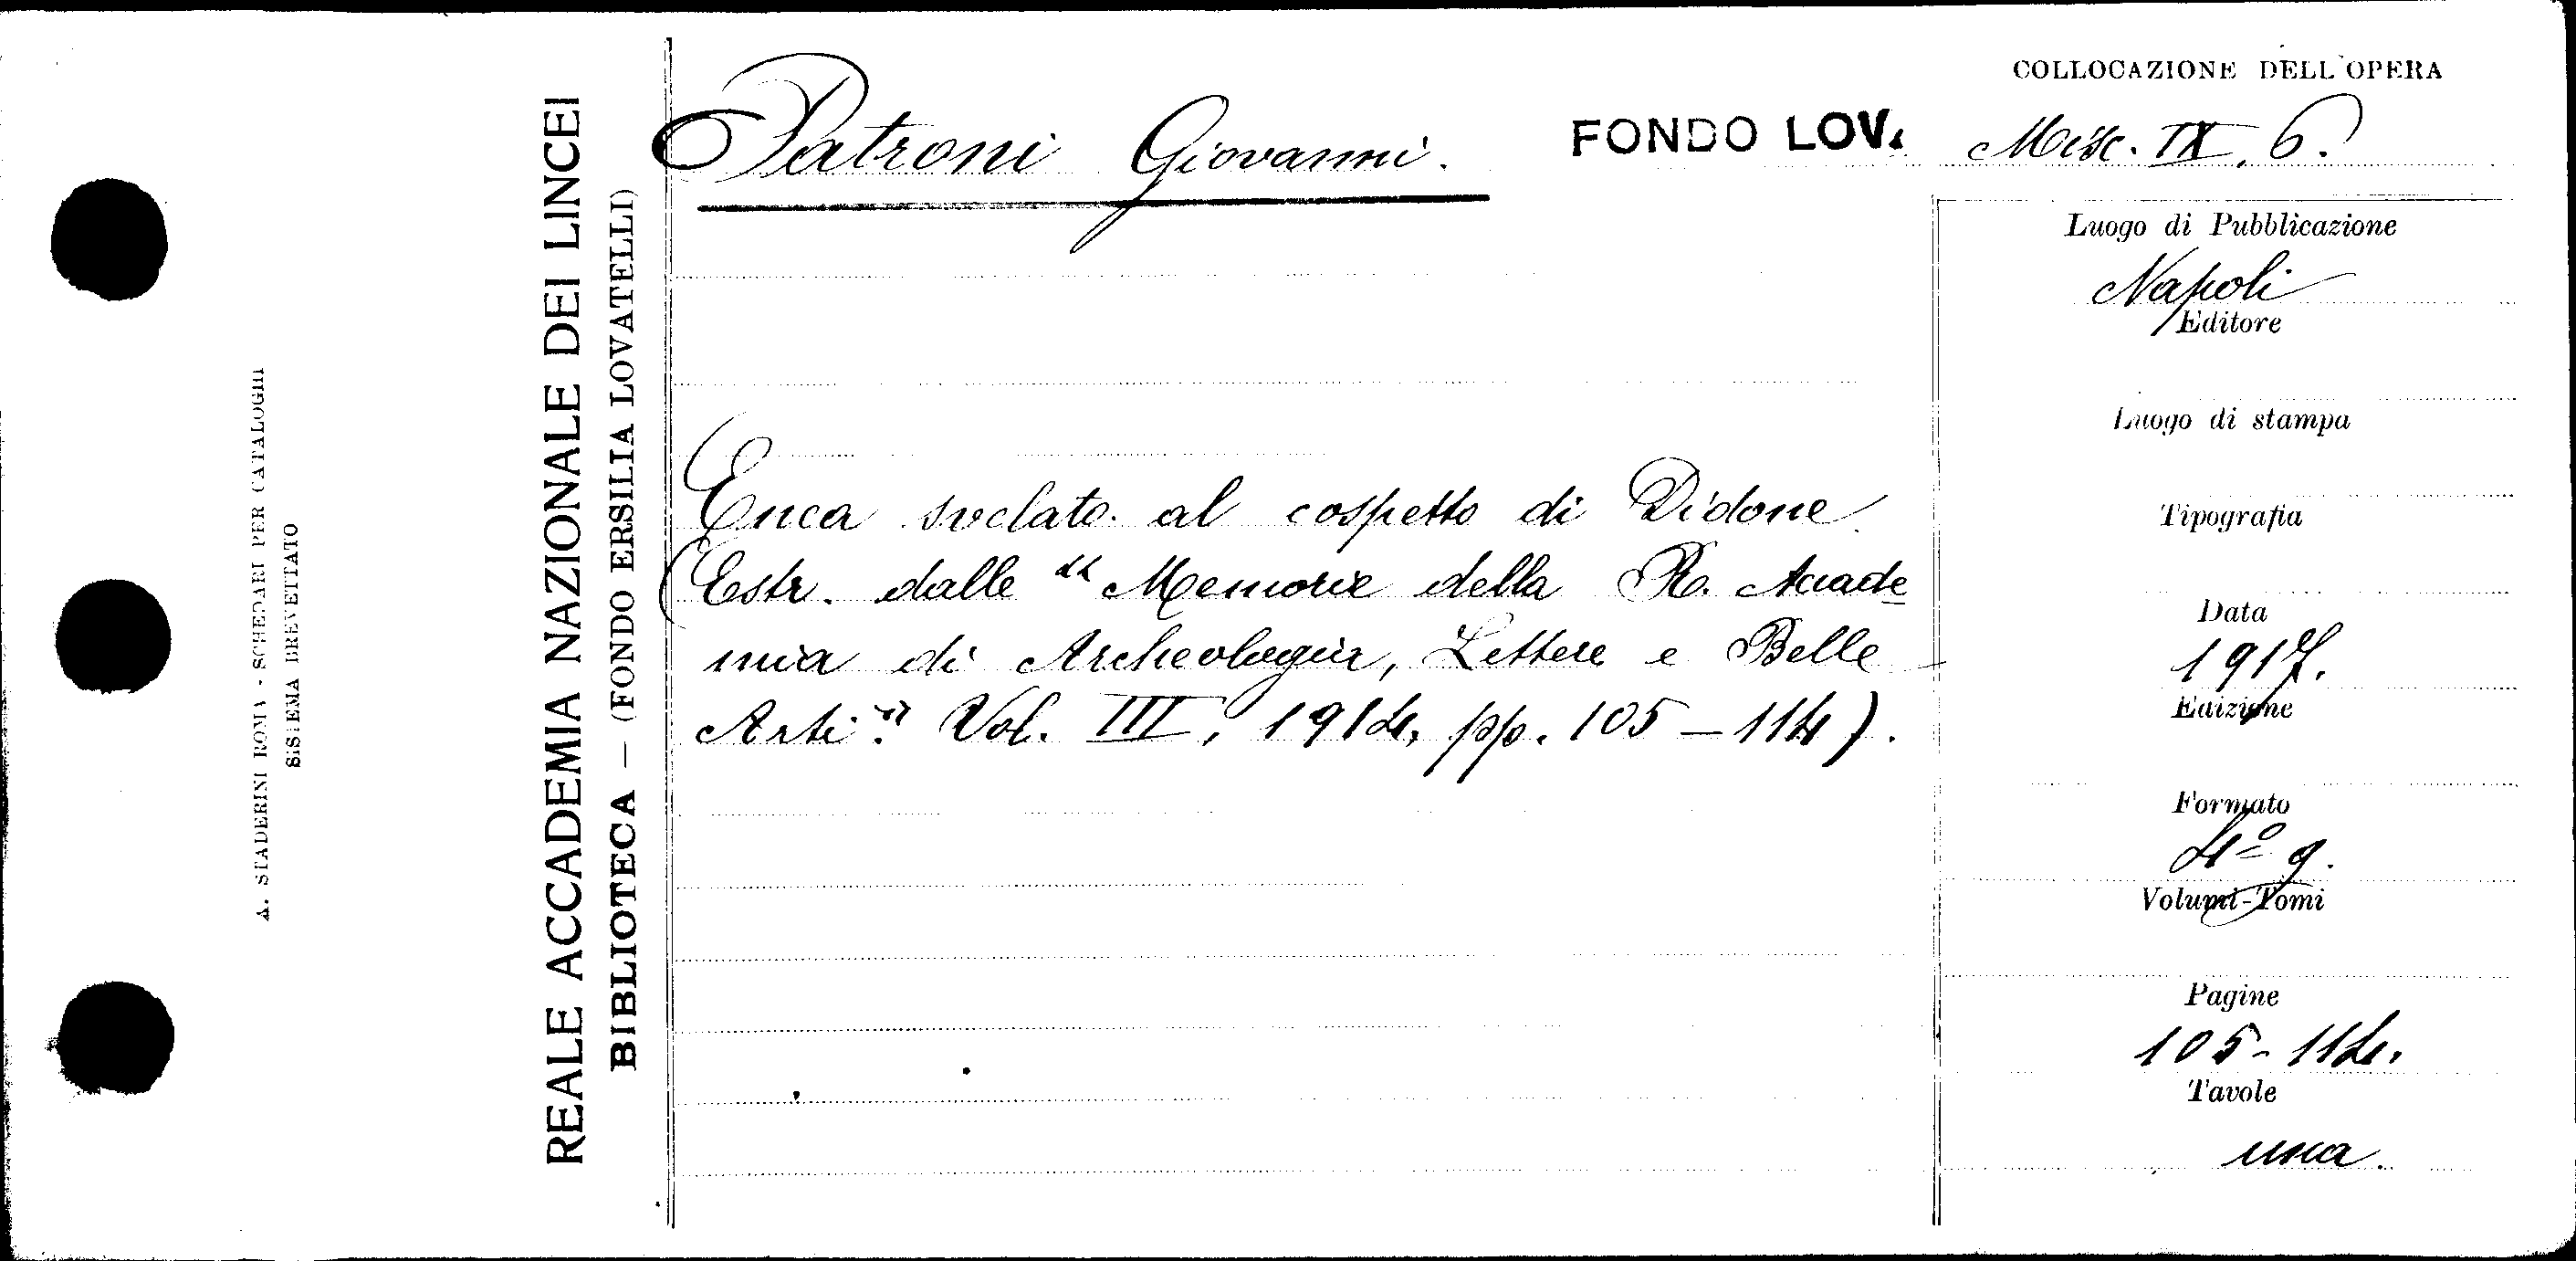 A. STADERINI ROMA - SCHEDARI PER CATALOGHI
SISTEMA BREVETTATO
REALE ACCADEMIA NAZIONALE DEI LINCEI
BIBLIOTECA — (FONDO ERSILIA LOVATELLI)
Patroni Giovanni.
Enea svelato al cospetto di Didone.
(Estr. dalle "Memorie della R. Accade
mia di Archeologia, Lettere e Belle
Arti". Vol. III, 1914, pp. 105-114).
COLLOCAZIONE DELL'OPERA
FONDO LOV. Misc. IX. 6.
Luogo di Pubblicazione
Napoli
Editore
Luogo di stampa
Tipografia
Data
1917.
Edizione
Formato
4º g.
Volumi-Tomi
Pagine
105-114.
Tavole
una.